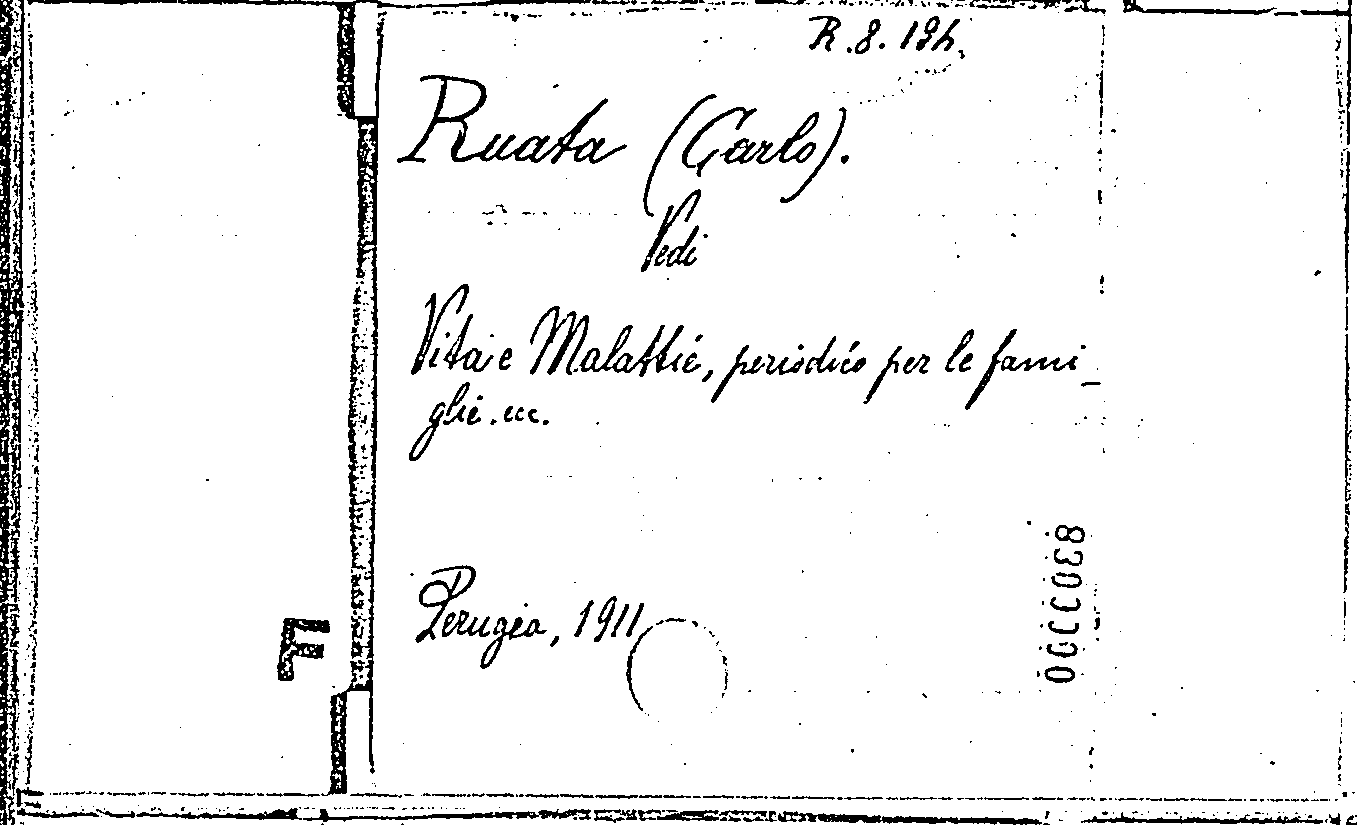 R.8.194.
Ruata (Carlo).
Vedi
Vita e Malattie, periodico per le fami_
glie. ecc.
Perugia, 1911
F